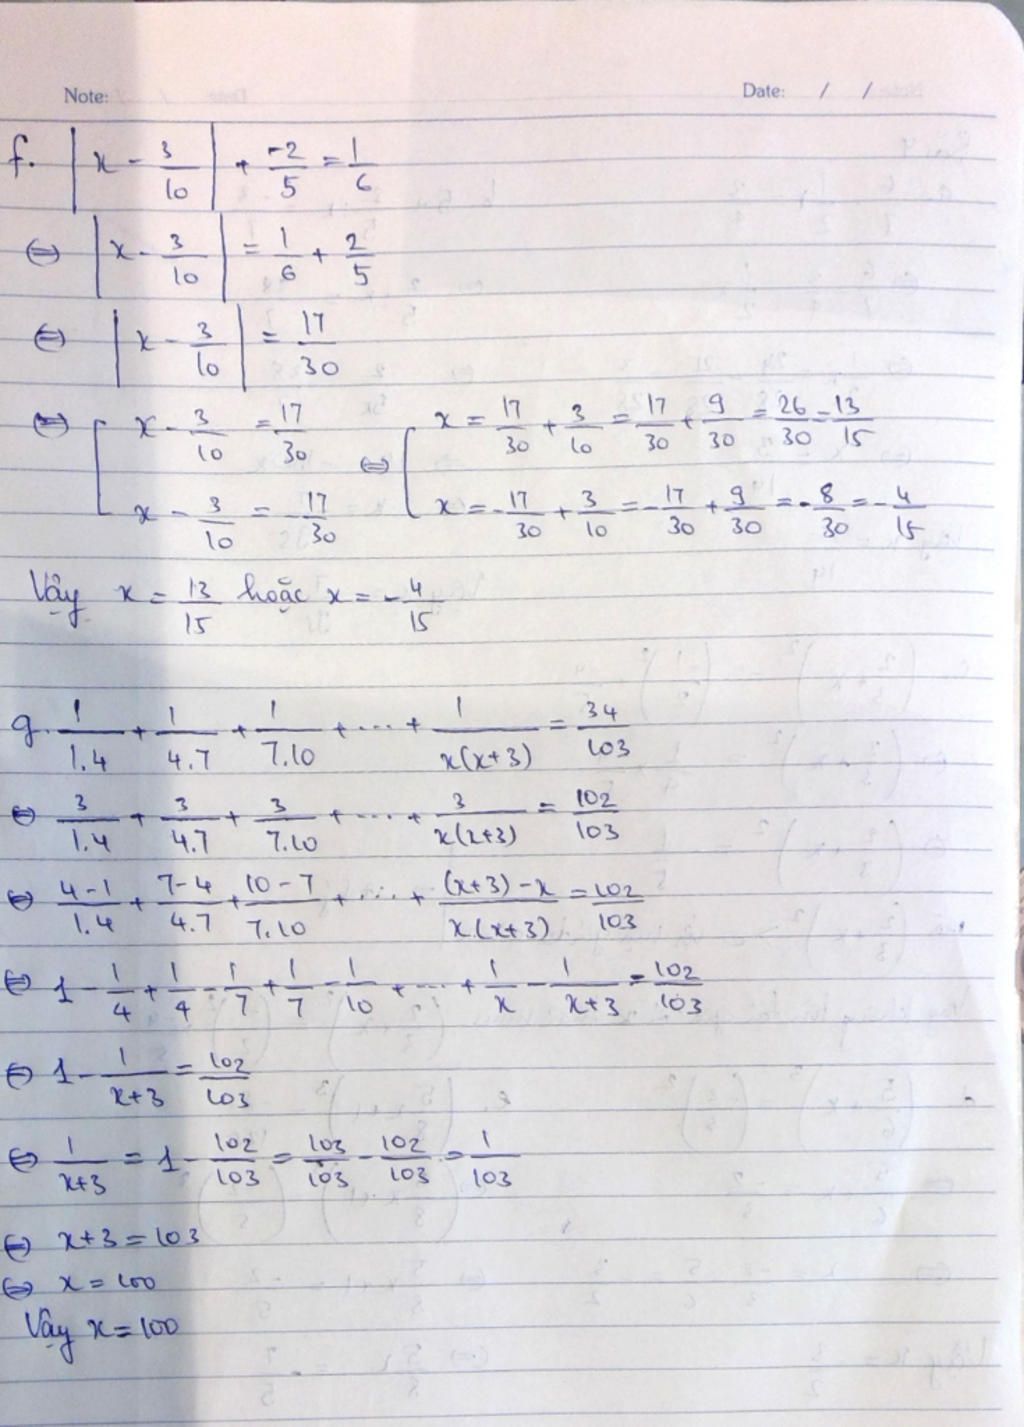 Note: Date: / /
f. |x - 3/10| + -2/5 = 1/6
⇔ |x - 3/10| = 1/6 + 2/5
⇔ |x - 3/10| = 17/30
⇔ [ x - 3/10 = 17/30 ⇔ [ x = 17/30 + 3/10 = 17/30 + 9/30 = 26/30 = 13/15
x - 3/10 = -17/30 x = -17/30 + 3/10 = -17/30 + 9/30 = -8/30 = -4/15
Vậy x = 13/15 hoặc x = -4/15
g. 1/1.4 + 1/4.7 + 1/7.10 + ... + 1/x(x+3) = 34/103
⇔ 3/1.4 + 3/4.7 + 3/7.10 + ... + 3/x(x+3) = 102/103
⇔ 4-1/1.4 + 7-4/4.7 + 10-7/7.10 + ... + (x+3)-x/x.(x+3) = 102/103
⇔ 1 - 1/4 + 1/4 - 1/7 + 1/7 - 1/10 + ... + 1/x - 1/x+3 = 102/103
⇔ 1 - 1/x+3 = 102/103
⇔ 1/x+3 = 1 - 102/103 = 103/103 - 102/103 = 1/103
⇔ x+3 = 103
⇔ x = 100
Vậy x = 100